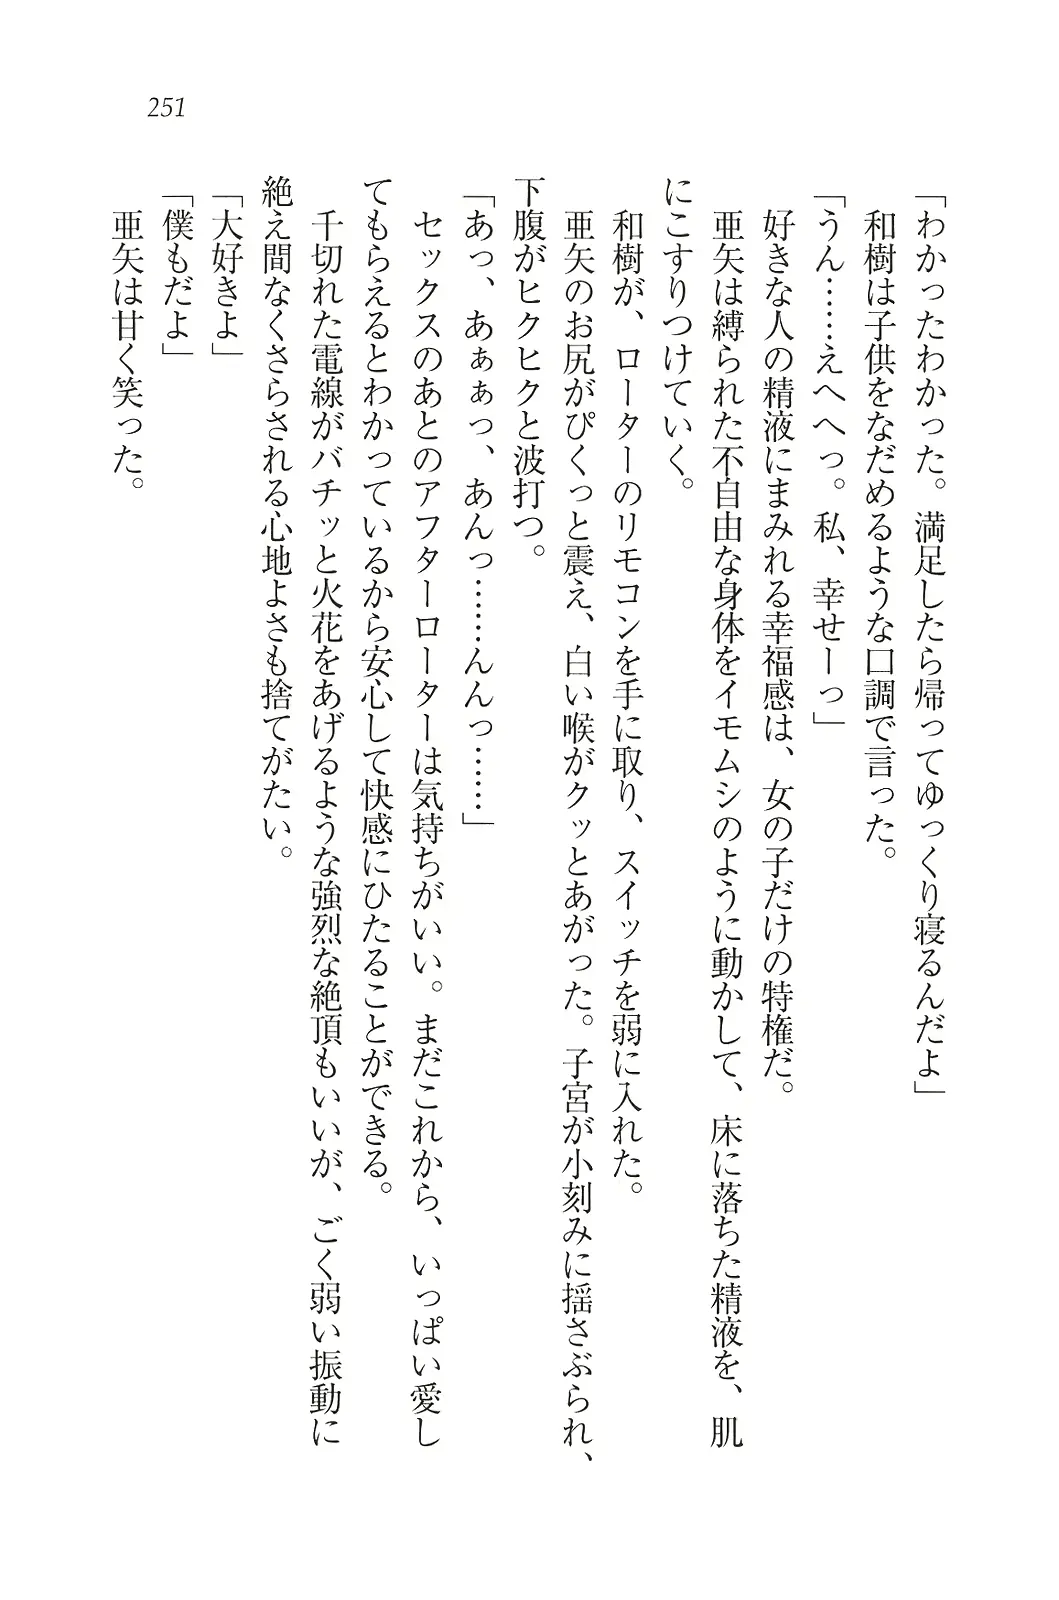 251
「わかったわかった。満足したら帰ってゆっくり寝るんだよ」
和樹は子供をなだめるような口調で言った。
「うん……えへへっ。私、幸せーっ」
好きな人の精液にまみれる幸福感は、女の子だけの特権だ。
亜矢は縛られた不自由な身体をイモムシのように動かして、床に落ちた精液を、肌
にこすりつけていく。
和樹が、ローターのリモコンを手に取り、スイッチを弱に入れた。
亜矢のお尻がぴくっと震え、白い喉がクッとあがった。子宮が小刻みに揺さぶられ、
下腹がヒクヒクと波打つ。
「あっ、あぁぁっ、あんっ……んんっ……」
セックスのあとのアフターローターは気持ちがいい。まだこれから、いっぱい愛し
てもらえるとわかっているから安心して快感にひたることができる。
千切れた電線がバチッと火花をあげるような強烈な絶頂もいいが、ごく弱い振動に
絶え間なくさらされる心地よさも捨てがたい。
「大好きよ」
「僕もだよ」
亜矢は甘く笑った。